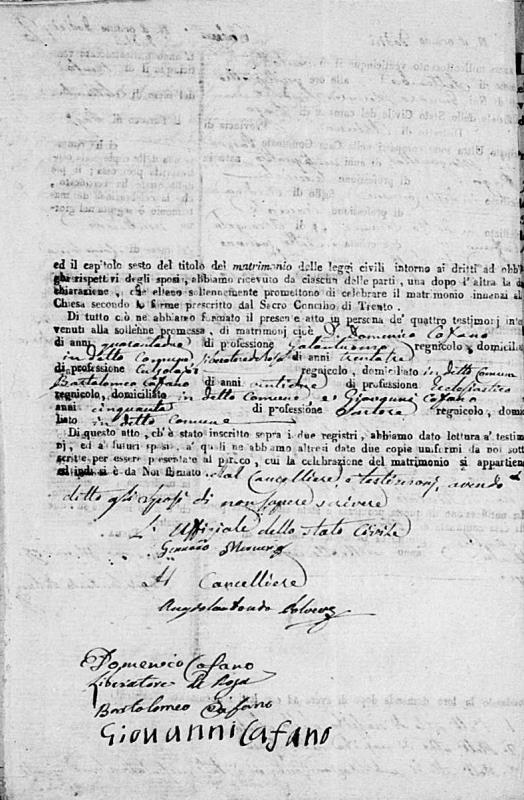 ed il capitolo sesto del titolo del matrimonio delle leggi civili intorno ai dritti ed obbli
ghi rispettivi degli sposi, abbiamo ricevuto da ciascuna delle parti, una dopo l'altra la di
chiarazione, che elleno sollennemente promettono di celebrare il matrimonio innanzi alla
Chiesa secondo le forme prescritto dal Sacro Concilio di Trento.
Di tutto ciò ne abbiamo formato il presente atto in persona de' quattro testimonj inter
venuti alla sollenne promessa, di matrimonj cioè D. Domenico Cafano
di anni quarantatre di professione Galantuomo regnicolo, domiciliato
in detto Comune, Liberatore di anni trentatre
di professione regnicolo, domiciliato in detto Comune
Bartolomeo Cafano di anni ventinove di professione Ecclesiastico
regnicolo, domiciliato in detto Comune, e Giovanni Cafano
anni cinquanta di professione Sartore regnicolo, domici
liato in detto Comune
Di questo atto, ch'è stato inscritto sopra i due registri, abbiamo dato lettura a' testimo
nj, ed a' futuri sposi, a' quali ne abbiamo altresì date due copie uniformi da noi sotto
scritte per essere presentate al parroco, cui la celebrazione del matrimonio si appartiene
ed indi si è da Noi firmato dal Cancelliere e testimonj, avendo
detto gli sposi di non sapere scrivere
L'Uffiziale dello stato Civile
Gennaro
Il Cancelliere
Domenico Cafano
Liberatore Di Rosa
Bartolomeo Cafano
Giovanni Cafano